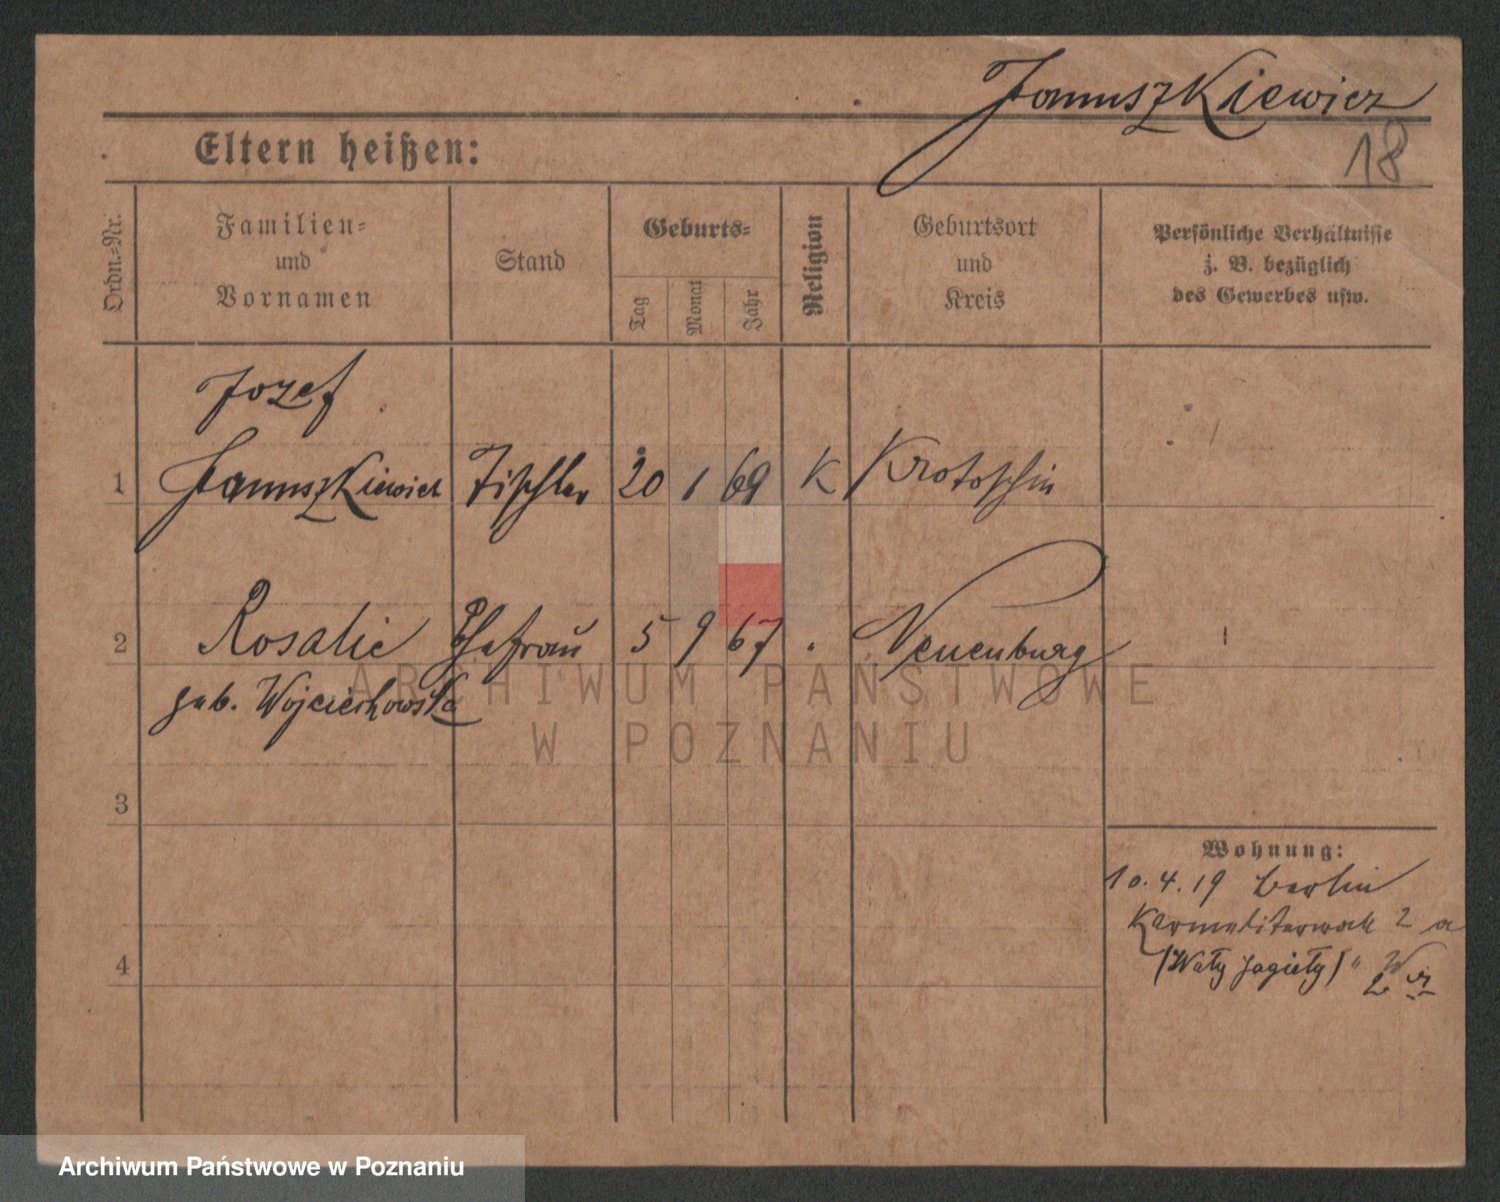 Januszkiewicz
18
Eltern heißen:
Ordn.-Nr.
Familien-
und
Vornamen
Stand
Geburts-
Tag
Monat
Jahr
Religion
Geburtsort
und
Kreis
Persönliche Verhältnisse
z. B. bezüglich
des Gewerbes usw.
Jozef
1 Januszkiewicz Tischler 20 1 69 K Krotoschin
2 Rosalie Ehefrau 5 9 67 . Neuenburg
geb. Wojciechowska
3
4
Wohnung:
10.4.19 Berlin
Karmeliterwall 2 a
(Wały Jagieły)
ARCHIWUM PAŃSTWOWE
W POZNANIU
Archiwum Państwowe w Poznaniu